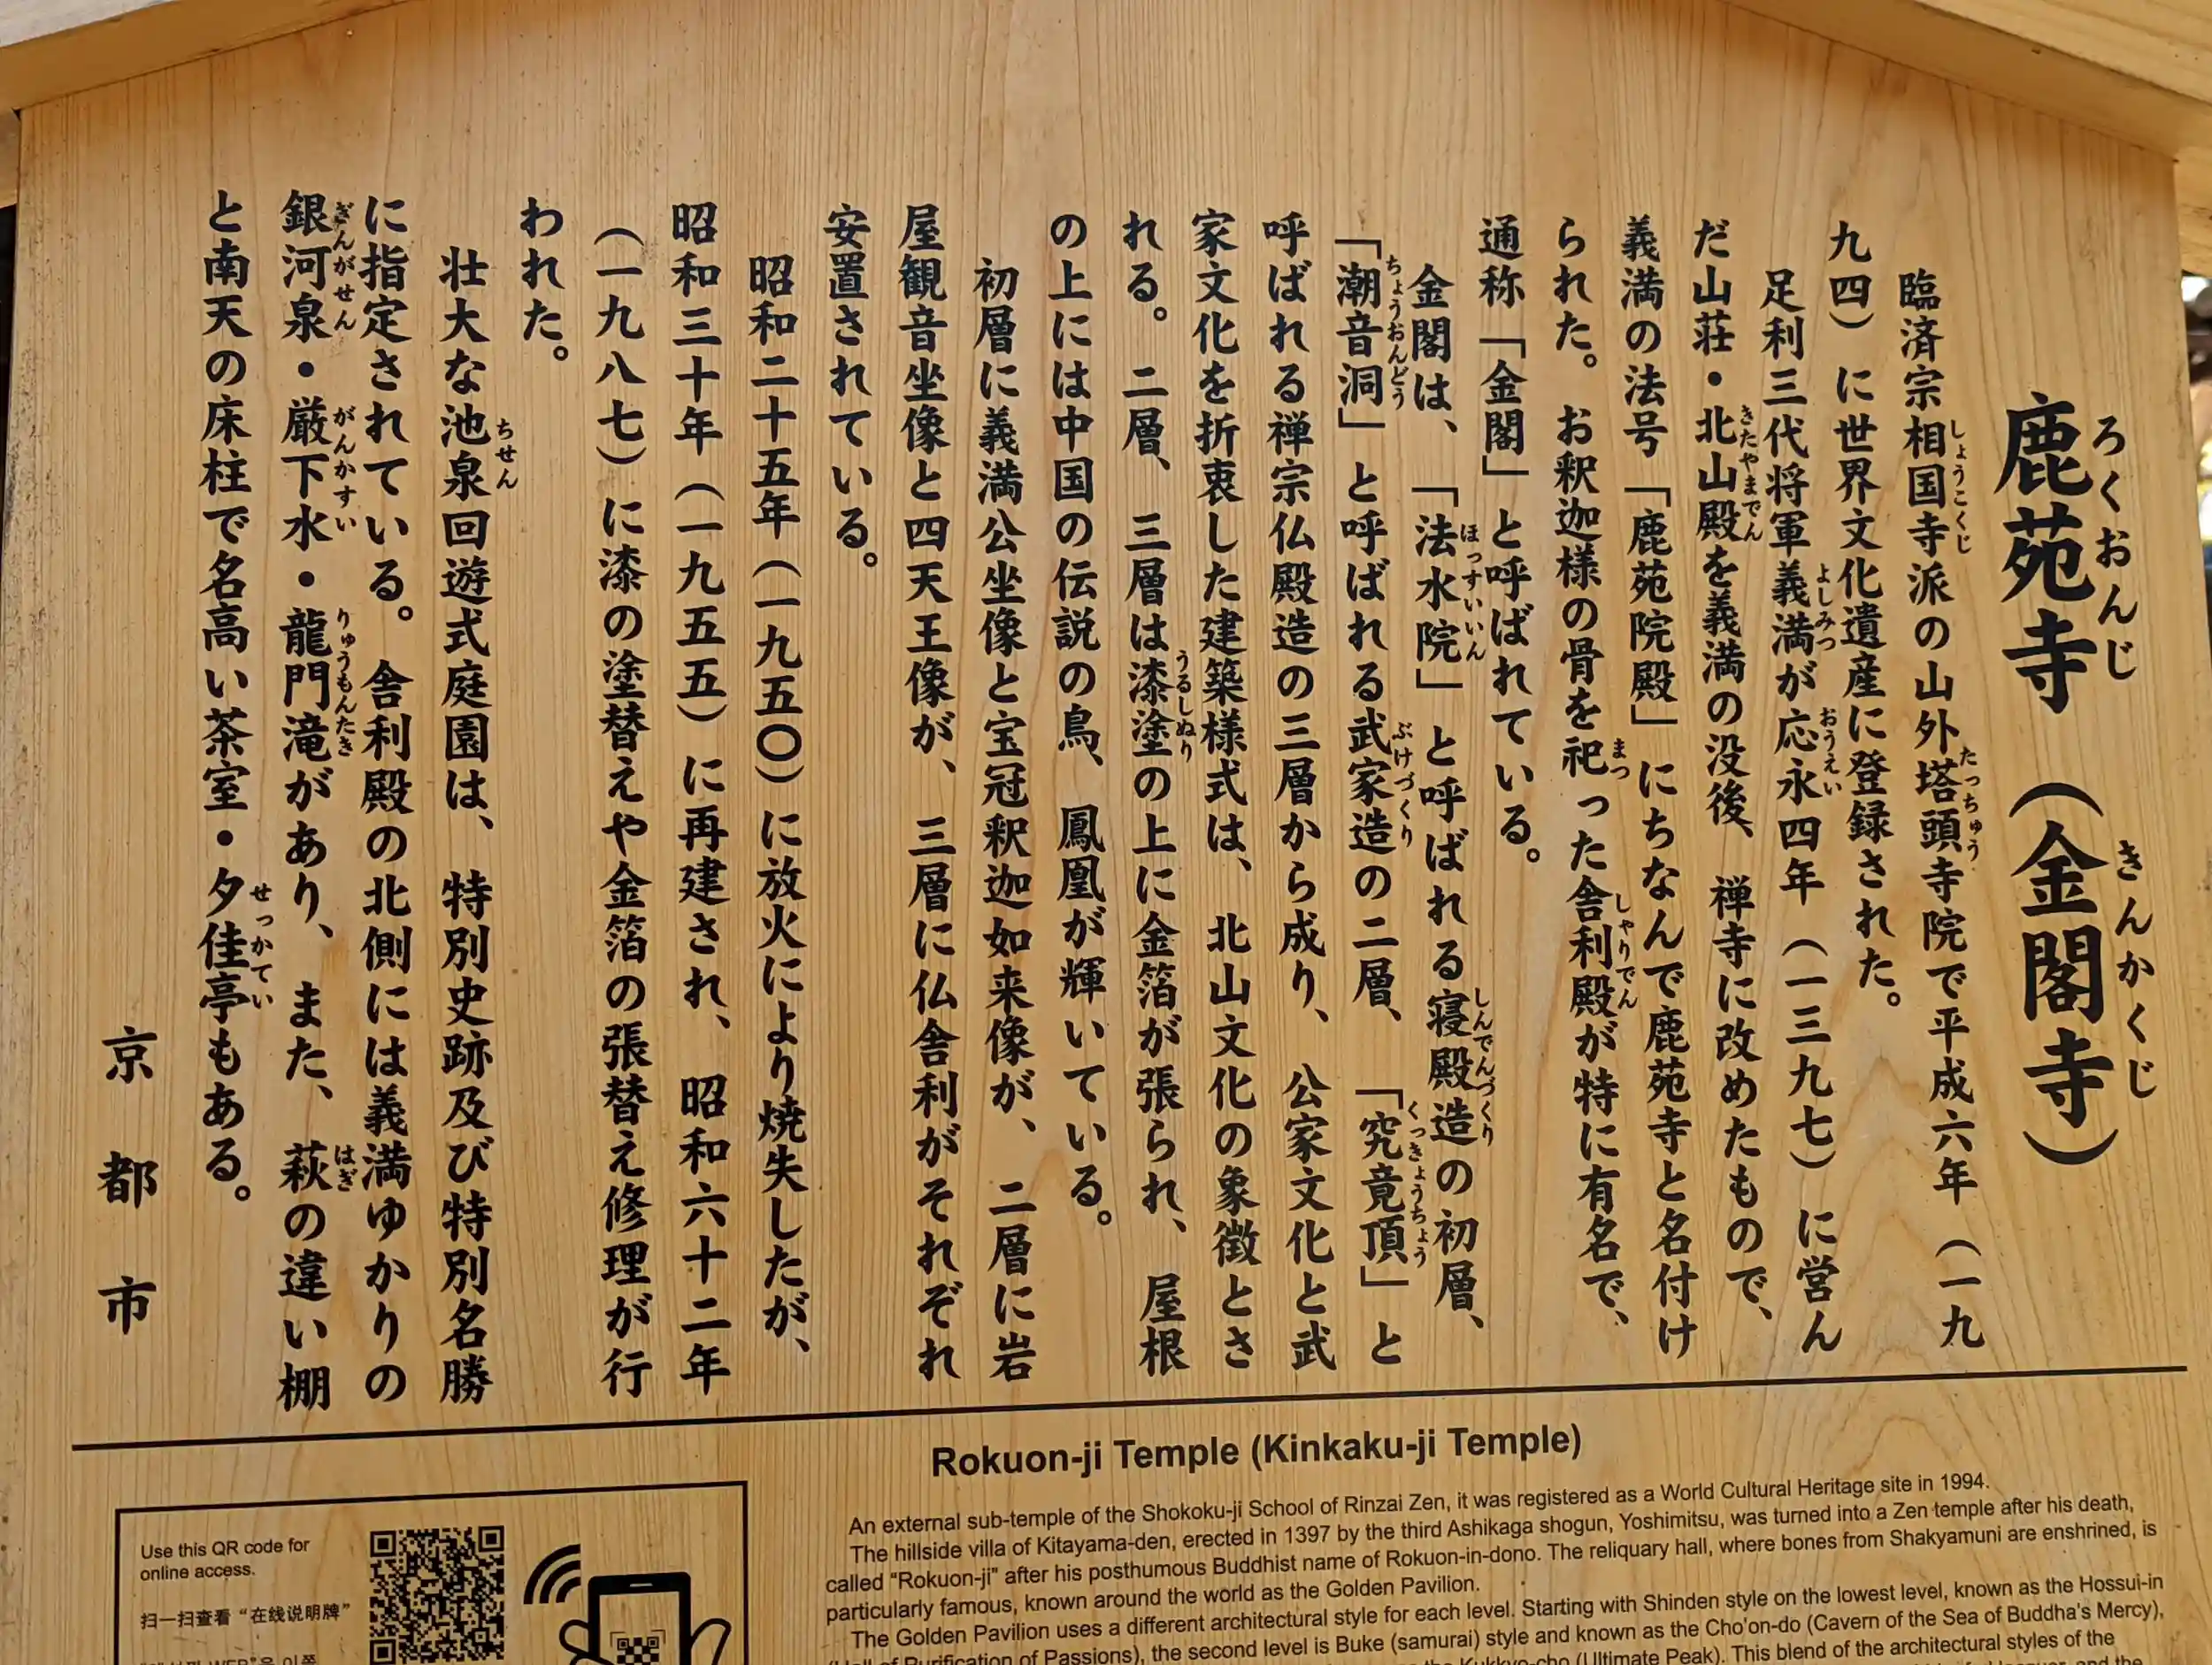 鹿苑寺（金閣寺）
ろくおんじ　きんかくじ
臨済宗相国寺派の山外塔頭寺院で平成六年（一九
九四）に世界文化遺産に登録された。
足利三代将軍義満が応永四年（一三九七）に営ん
だ山荘・北山殿を義満の没後、禅寺に改めたもので、
義満の法号「鹿苑院殿」にちなんで鹿苑寺と名付け
られた。お釈迦様の骨を祀った舎利殿が特に有名で、
通称「金閣」と呼ばれている。
金閣は、「法水院」と呼ばれる寝殿造の初層、
「潮音洞」と呼ばれる武家造の二層、「究竟頂」と
呼ばれる禅宗仏殿造の三層から成り、公家文化と武
家文化を折衷した建築様式は、北山文化の象徴とさ
れる。二層、三層は漆塗の上に金箔が張られ、屋根
の上には中国の伝説の鳥、鳳凰が輝いている。
初層に義満公坐像と宝冠釈迦如来像が、二層に岩
屋観音坐像と四天王像が、三層に仏舎利がそれぞれ
安置されている。
昭和二十五年（一九五〇）に放火により焼失したが、
昭和三十年（一九五五）に再建され、昭和六十二年
（一九八七）に漆の塗替えや金箔の張替え修理が行
われた。
壮大な池泉回遊式庭園は、特別史跡及び特別名勝
に指定されている。舎利殿の北側には義満ゆかりの
銀河泉・厳下水・龍門滝があり、また、萩の違い棚
と南天の床柱で名高い茶室・夕佳亭もある。
京都市
Rokuon-ji Temple (Kinkaku-ji Temple)
An external sub-temple of the Shokoku-ji School of Rinzai Zen, it was registered as a World Cultural Heritage site in 1994.
The hillside villa of Kitayama-den, erected in 1397 by the third Ashikaga shogun, Yoshimitsu, was turned into a Zen temple after his death,
called “Rokuon-ji” after his posthumous Buddhist name of Rokuon-in-dono. The reliquary hall, where bones from Shakyamuni are enshrined, is
particularly famous, known around the world as the Golden Pavilion.
The Golden Pavilion uses a different architectural style for each level. Starting with Shinden style on the lowest level, known as the Hossui-in
(Hall of Purification of Passions), the second level is Buke (samurai) style and known as the Cho’on-do (Cavern of the Sea of Buddha’s Mercy),
the Kukkyo-cho (Ultimate Peak). This blend of the architectural styles of the
Use this QR code for
online access.
扫一扫查看“在线说明牌”